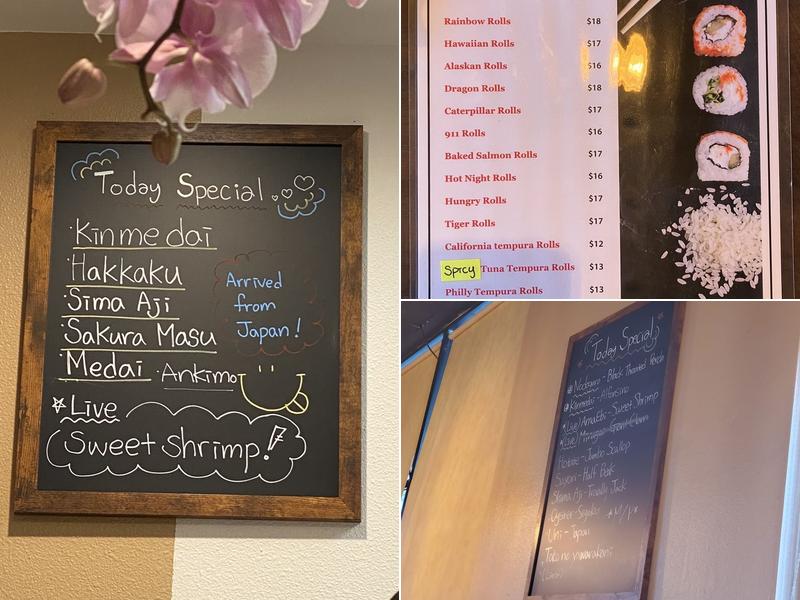 Today Special
Kinmedai
Hakkaku
Sima Aji
Sakura Masu
Medai · Ankimo
Arrived
from
Japan!
Live
Sweet shrimp!
Rainbow Rolls $18
Hawaiian Rolls $17
Alaskan Rolls $16
Dragon Rolls $18
Caterpillar Rolls $17
911 Rolls $16
Baked Salmon Rolls $17
Hot Night Rolls $16
Hungry Rolls $17
Tiger Rolls $17
California tempura Rolls $12
Spicy Tuna Tempura Rolls $13
Philly Tempura Rolls $13
Today Special
Nodoguro - Black Throated Perch
Kinmedai - Alfonsino
(Live) Ama Ebi - Sweet Shrimp
(Live) Mirugai - Giant Clam
Hotate - Jumbo Scallop
Sayori - Half Beak
Shima Aji - Trevally Jack
Oyster
Uni - Japan